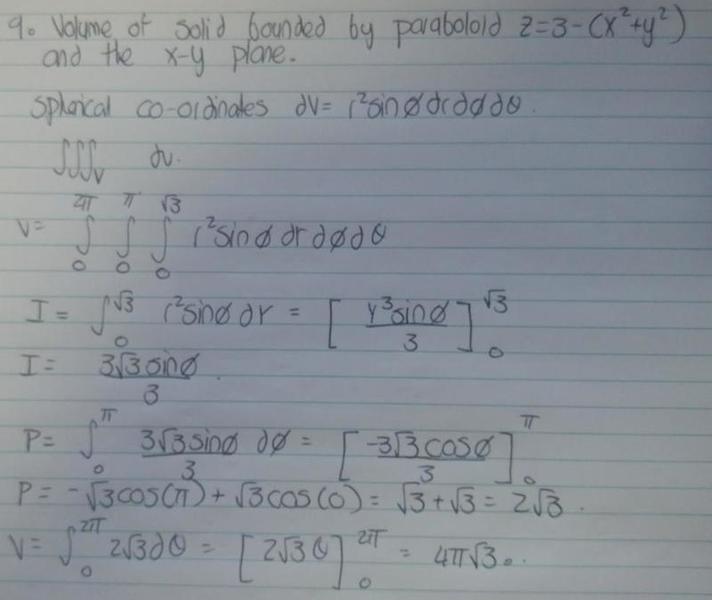 9. Volume of solid bounded by paraboloid z=3-(x²+y²)
and the x-y plane.
Spherical co-ordinates dV= r²sinØdrdØdθ.
∫∫∫ᵥ dv.
V= ∫₀^{2π} ∫₀^{π} ∫₀^{√3} r²sinØ dr dØ dθ
I = ∫₀^{√3} r²sinØ dr = [r³sinØ/3]₀^{√3}
I = 3√3 sinØ/3.
P= ∫₀^{π} 3√3 sinØ/3 dØ = [-3√3 cosØ/3]₀^{π}
P= -√3cos(π) + √3cos(0) = √3+√3 = 2√3.
V= ∫₀^{2π} 2√3 dθ = [2√3 θ]₀^{2π} = 4π√3.